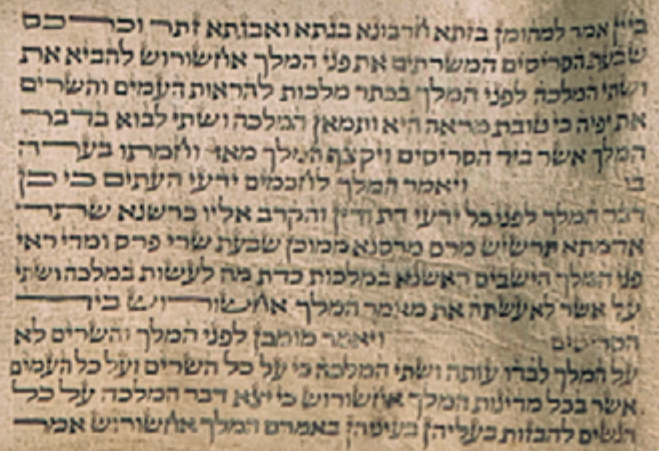 ביין אמר למהומן בזתא חרבונא בגתא ואבגתא זתר וכרכס
שבעת הסריסים המשרתים את פני המלך אחשורוש להביא את
ושתי המלכה לפני המלך בכתר מלכות להראות העמים והשרים
את יפיה כי טובת מראה היא ותמאן המלכה ושתי לבוא בדבר
המלך אשר ביד הסריסים ויקצף המלך מאד וחמתו בערה
בו ויאמר המלך לחכמים ידעי העתים כי כן
דבר המלך לפני כל ידעי דת ודין והקרב אליו כרשנא שתר
אדמתא תרשיש מרס מרסנא ממוכן שבעת שרי פרס ומדי ראי
פני המלך הישבים ראשנה במלכות כדת מה לעשות במלכה ושתי
על אשר לא עשתה את מאמר המלך אחשורוש ביד
הסריסים ויאמר מומכן לפני המלך והשרים לא
על המלך לבדו עותה ושתי המלכה כי על כל השרים ועל כל העמים
אשר בכל מדינות המלך אחשורוש כי יצא דבר המלכה על כל
הנשים להבזות בעליהן בעיניהן באמרם המלך אחשורוש אמר